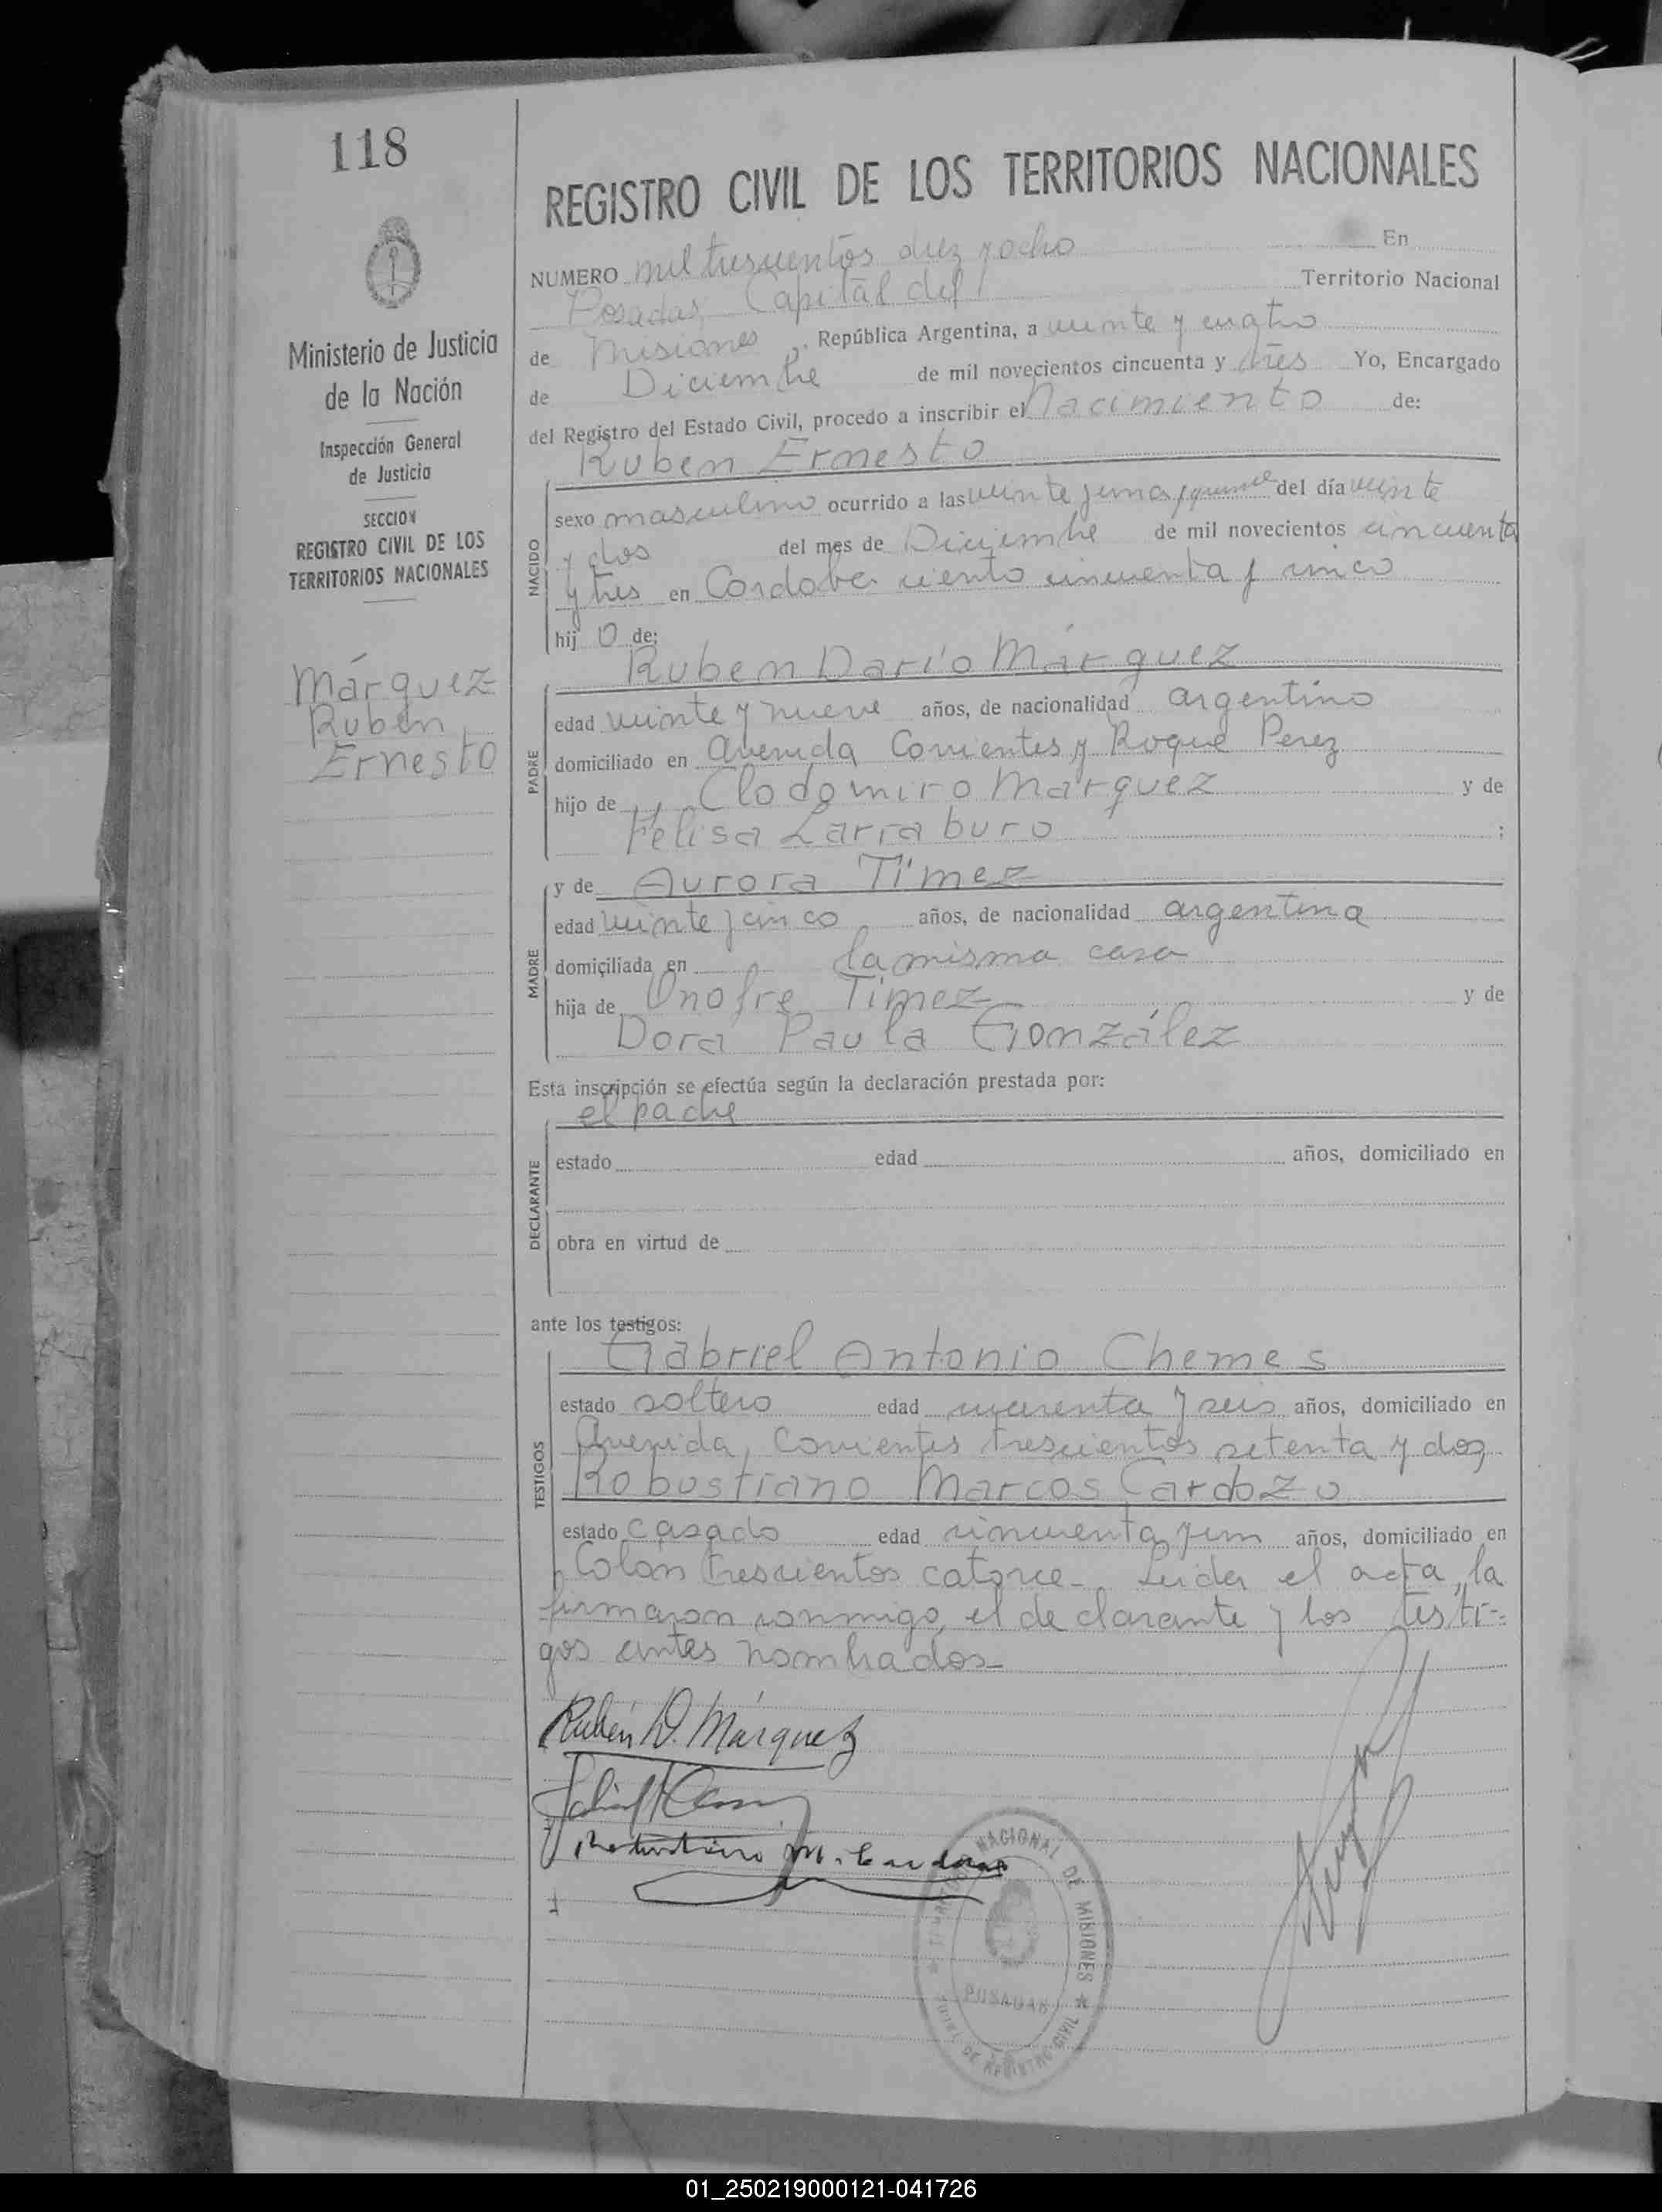 118
REGISTRO CIVIL DE LOS TERRITORIOS NACIONALES
NUMERO mil trescientos diez y ocho En
Posadas, Capital del Territorio Nacional
de Misiones, República Argentina, a veinte y cuatro
de Diciembre de mil novecientos cincuenta y tres Yo, Encargado
del Registro del Estado Civil, procedo a inscribir el Nacimiento de:
Ruben Ernesto
Ministerio de Justicia
de la Nación
Inspección General
de Justicia
SECCION
REGISTRO CIVIL DE LOS
TERRITORIOS NACIONALES
Márquez
Rubén
Ernesto
NACIDO
sexo masculino ocurrido a las veinte y una y quince del día veinte
y dos del mes de Diciembre de mil novecientos cincuenta
y tres en Cordoba ciento cincuenta y cinco
hijo de:
Ruben Darío Márquez
PADRE
edad veinte y nueve años, de nacionalidad argentino
domiciliado en Avenida Corrientes y Roque Perez
hijo de Clodomiro Márquez y de
Felisa Larraburo ;
y de Aurora Timez
MADRE
edad veinte y cinco años, de nacionalidad argentina
domiciliada en la misma casa
hija de Onofre Timez y de
Dora Paula González
Esta inscripción se efectúa según la declaración prestada por:
el padre
DECLARANTE
estado edad años, domiciliado en
obra en virtud de
ante los testigos:
Gabriel Antonio Chemes
TESTIGOS
estado soltero edad cuarenta y seis años, domiciliado en
Avenida Corrientes trescientos setenta y dos,
Robustiano Marcos Cardozo
estado casado edad cincuenta y un años, domiciliado en
Colón trescientos catorce- Leida el acta, la
firmaron conmigo, el declarante y los testi-
gos antes nombrados-
Rubén D. Márquez
Robustiano M. Cardozo
NACIONAL DE MISIONES
POSADAS
DE REGISTRO CIVIL
01_250219000121-041726